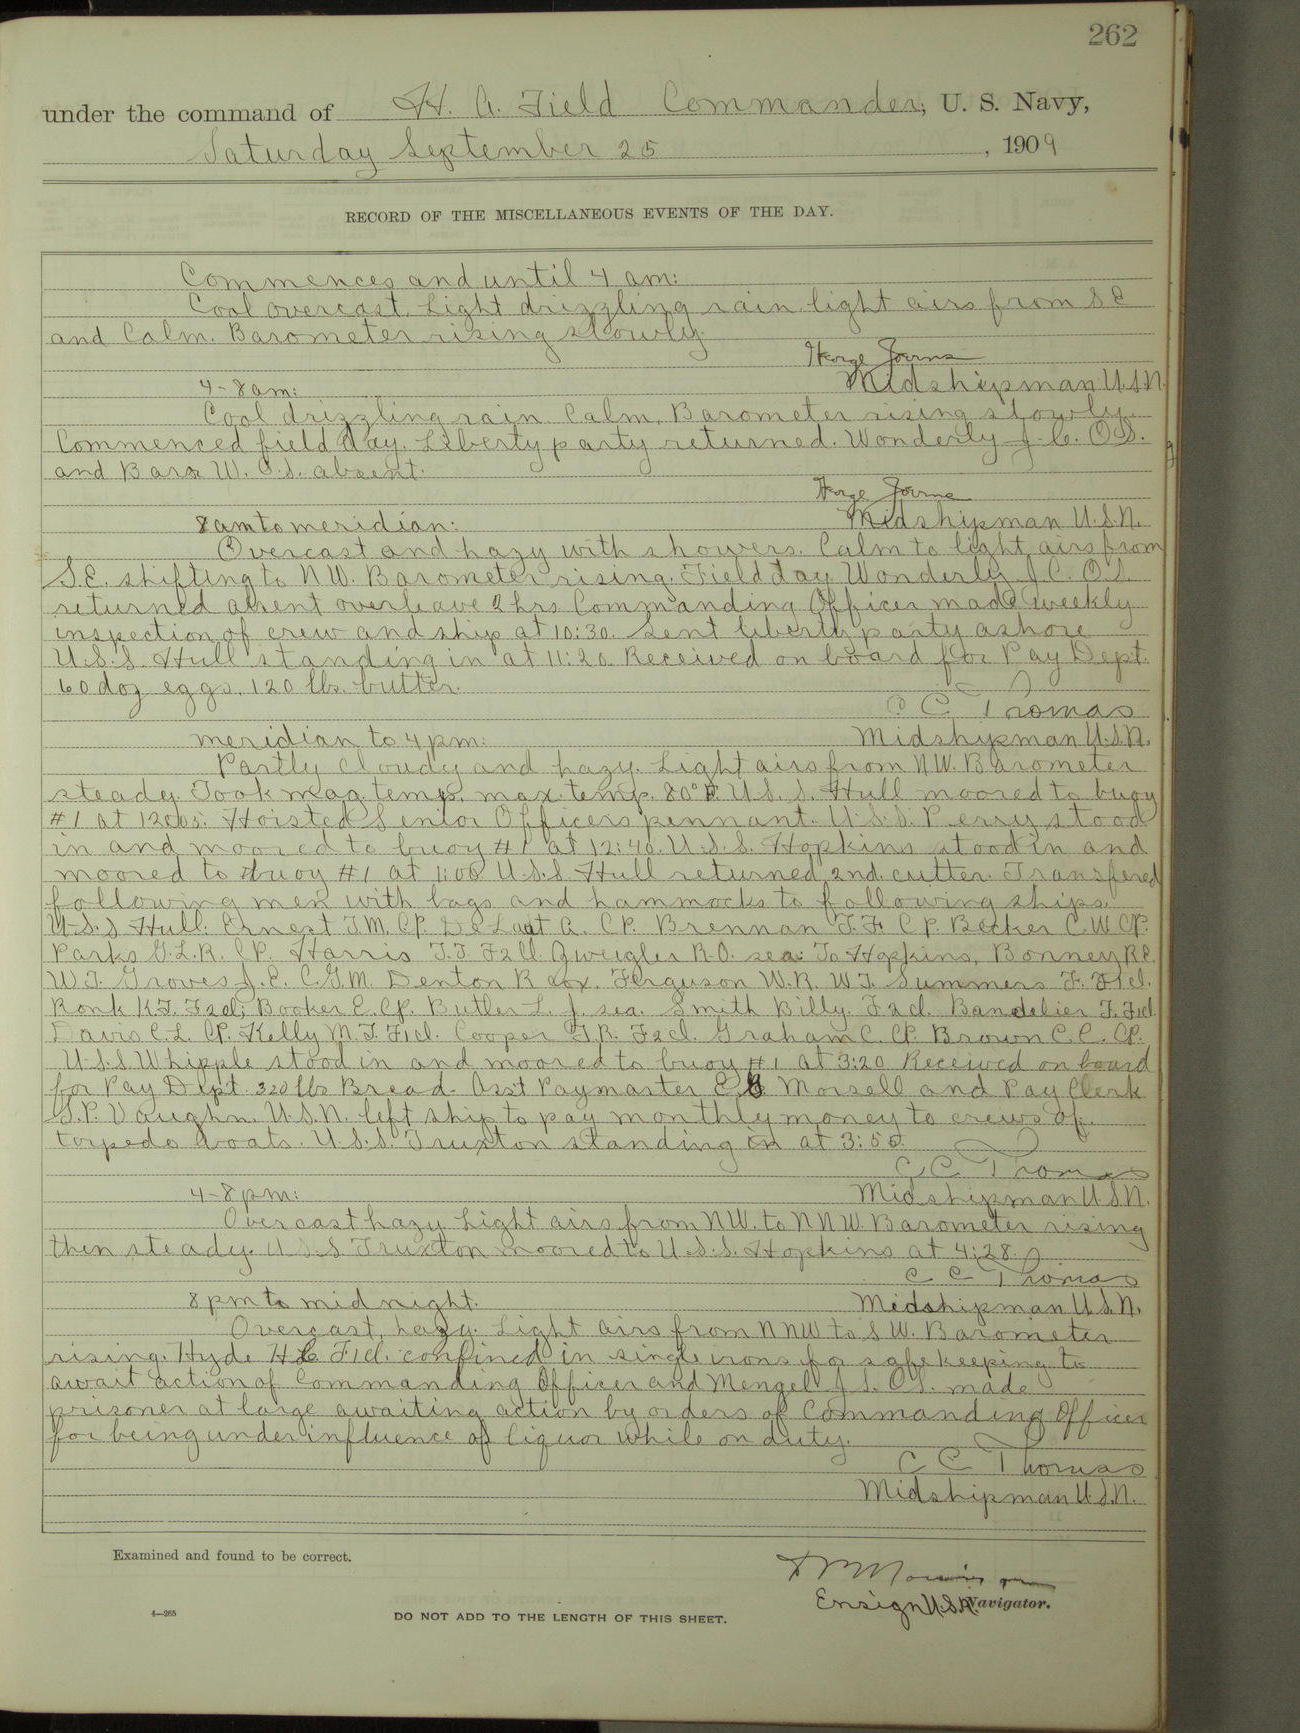 262
under the command of H. A. Field Commander, U. S. Navy,
Saturday September 25, 1909
RECORD OF THE MISCELLANEOUS EVENTS OF THE DAY.
Commences and until 4 am:
Cool overcast. Light drizzling rain. light airs from S E
and Calm. Barometer rising slowly.
Midshipman U.S.N.
4-8am:
Cool drizzling rain Calm. Barometer rising slowly.
Commenced field day. Liberty party returned. Wonderly J. C. O.S.
and W. O.S. absent.
Midshipman U.S.N.
8am to meridian:
Overcast and hazy with showers. Calm to light airs from
S.E. shifting to NW. Barometer rising. Field day Wonderly J. C. O.S.
returned absent overleave 2 hrs Commanding Officer made weekly
inspection of crew and ship at 10:30. Sent liberty party ashore
U.S.S. Hull standing in at 11:20. Received on board for Pay Dept.
60 doz eggs. 120 lbs. butter.
C C Thomas
Midshipman U.S.N.
meridian to 4 pm:
Partly cloudy and hazy. Light airs from NW. Barometer
steady. Took mag. temp. max. temp. 80°F. U.S.S. Hull moored to buoy
#1 at 12:05. Hoisted Senior Officers pennant. U.S.S. Perry stood
in and moored to buoy #1 at 12:40. U.S.S. Hopkins stood in and
moored to buoy #1 at 1:00 U.S.S Hull returned 2nd. cutter. Transfered
following men with bags and hammocks to following ships.
U.S.S Hull. Ernest T.M. CP. A. CP. Brennan T.F. C.P. Becker C.W. CP.
Parks G.L.R. CP. Harris T.J. F2cl. R.O. sea. To Hopkins, Bonney R.E.
W.T. Groves J.E. C.G.M. Denton R cox. Ferguson W.R. W.T. Summers F. F1cl.
Ronk K.F. F2cl; Booker E. CP. Butler L. J. sea. Smith Billy. F2cl. Bandelier F. F1cl.
Davis C.L. CP. Kelly M.J. F1cl. Cooper J.R. F2cl. Graham C. CP. Brown C.C. CP.
U.S.S. Whipple stood in and moored to buoy #1 at 3:20 Received on board
for Pay Dept. 320 lbs Bread. Asst Paymaster Morsell and Pay Clerk
S.P. Vaughn. U.S.N. left ship to pay monthly money to crews of
torpedo boats. U.S.S. Truxton standing in at 3:50.
C C Thomas
Midshipman U.S.N.
4-8 pm:
Overcast hazy. Light airs from NW. to NNW. Barometer rising
then steady. U.S.S Truxton moored to U.S.S. Hopkins at 4:28.
C C Thomas
Midshipman U.S.N.
8 pm to midnight.
Overcast, hazy. Light airs from NNW to SW. Barometer
rising. Hyde H.C. F1cl. confined in single irons for safe keeping to
await action of Commanding Officer and Mengel J. S. O.S. made
prisoner at large awaiting action by orders of Commanding Officer
for being under influence of liquor while on duty.
C C Thomas
Midshipman U.S.N.
Examined and found to be correct.
Ensign U.S.N. Navigator.
4—265
DO NOT ADD TO THE LENGTH OF THIS SHEET.